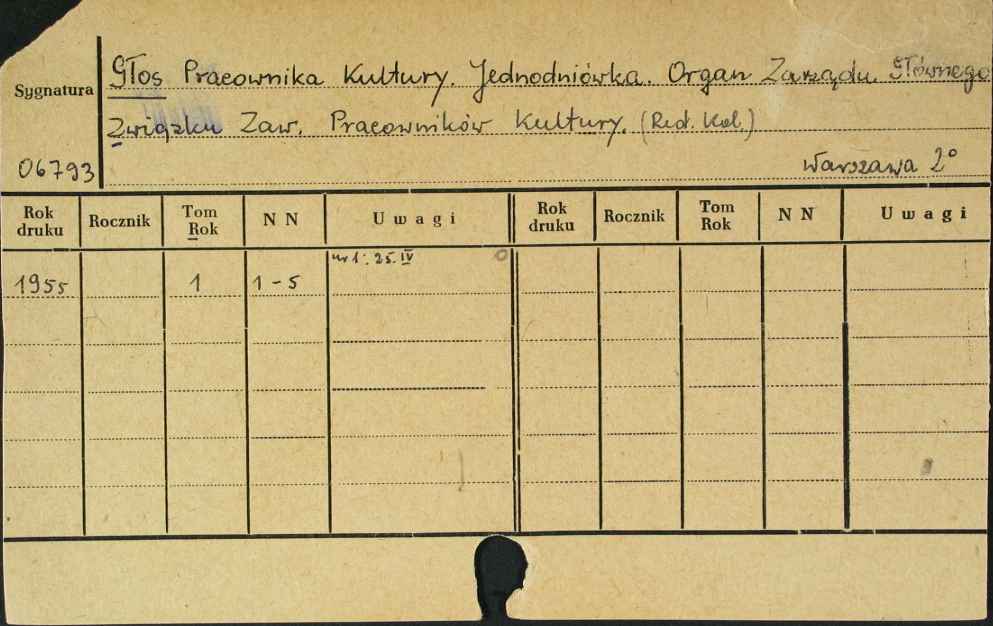 Głos Pracownika Kultury. Jednodniówka. Organ Zarządu Głównego
Sygnatura
Związku Zaw. Pracowników Kultury. (Red. Kol.)
06793
Warszawa 2°
Rok druku Rocznik Tom Rok N N Uwagi Rok druku Rocznik Tom Rok N N Uwagi
nr 1: 25.IV
1955 1 1-5